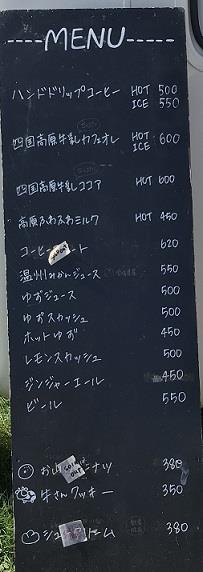 -----MENU-----
ハンドドリップコーヒー HOT 500
ICE 550
四国高原牛乳カフェオレ HOT ICE 600
四国高原牛乳ココア HUT 600
高原ふわふわミルク HOT 450
コーヒー ート 620
温州みかんジュース 550
ゆずジュース 500
ゆずスカッシュ 500
ホットゆず 450
レモンスカッシュ 500
ジンジャーエール 450
ビール 550
ナツ 380
SOLD OUT
牛さんクッキー 350
シュ ーム 380